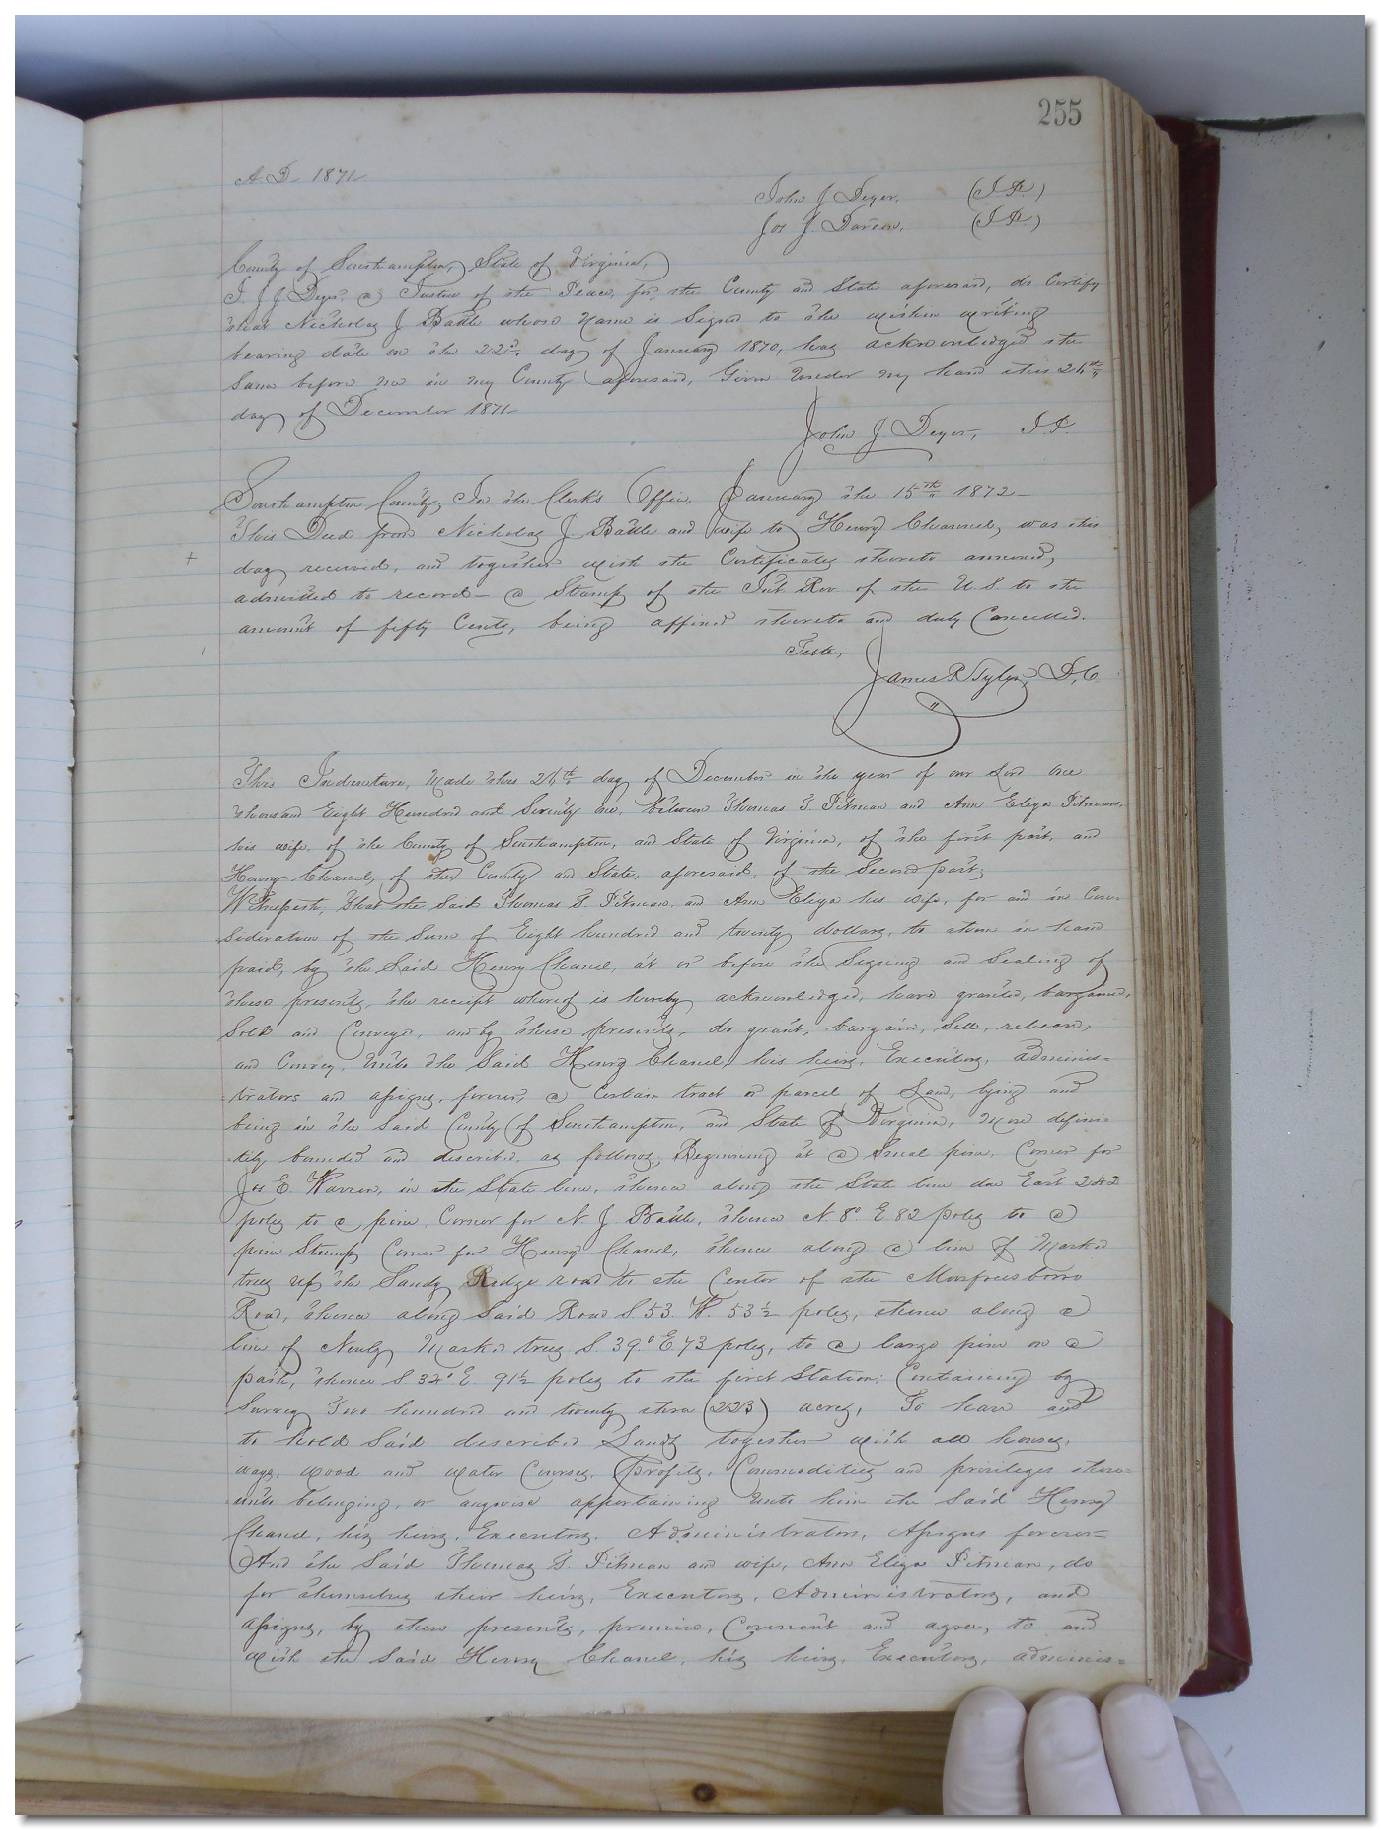 255
A.D. 1871
John J Deyer, (J.P.)
Jos J. Darden, (J.P.)
County of Southampton, State of Virginia,
I, J J Deyer, a Justice of the Peace, for the County and State aforesaid, do Certify
that Nicholas J Battle whose name is Signed to the within writing
bearing date on the 22d. day of January 1870, has acknowledged the
Same before me in my County aforesaid, Given under my hand this 24th
day of December 1871
John J. Deyer, J.P.
Southampton County, In the Clerk's Office January the 15th 1872
This Deed from Nicholas J Battle and wife to Henry was this
day received, and together with the Certificates thereto annexed,
admitted to record a Stamp of the Int. Rev of the U.S. to the
amount of fifty Cents, being affixed thereto and duly Cancelled.
Teste,
James R Tyler, D.C.
This Indenture, Made this 24th day of December in the year of our Lord One
thousand Eight Hundred and Seventy one, between Thomas T. Pitman and Ann Eliza Pitman,
his wife, of the County of Southampton, and State of Virginia, of the first part, and
Henry Chanel, of the County and State, aforesaid, of the Second part,
Witnesseth, that the Said Thomas T. Pitman, and Ann Eliza his wife, for and in Con-
sideration of the Sum of Eight hundred and twenty dollars, to them in hand
paid, by the Said Henry Chanel, at or before the Signing and Sealing of
these presents, the receipt whereof is hereby acknowledged, have granted, bargained,
Sold and Conveyed, and by these presents, do grant, bargain, Sell, release,
and Convey, Unto the Said Henry Chanel, his heirs, Executors, adminis=
trators and assigns, forever, a Certain tract or parcel of Land, lying and
being in the Said County of Southampton, and State of Virginia, More defini=
tely bounded and described, as follows, Beginning at a Small pine, Corner for
Jos E. Warren, in the State line, thence along the State line due East 242
poles to a pine, Corner for N. J. Battle, thence N. 8° E 82 poles to a
pine Stump Corner for Henry Chanel, thence along a line of Marked
trees up the Sandy Ridge road to the Center of the Murfreesboro
Road, thence along Said Road S. 53. W. 53½ poles, thence along a
line of Newly Marked trees S. 39° E 73 poles, to a large pine on a
path, thence S 32° E. 91½ poles to the first Station: Containing by
Survey Two hundred and twenty three (223) acres, To have and
to hold Said described Lands together with all houses,
ways, wood and water Courses, profits, Commodities and privileges there=
unto belonging, or anywise appertaining Unto him the Said Henry
Chanel, his heirs, Executors, Administrators, Assigns forever=
And the Said Thomas T. Pitman and wife, Ann Eliza Pitman, do
for themselves their heirs, Executors, Administrators, and
assigns, by these presents, promise, Covenant and agree, to and
with the Said Henry Chanel, his heirs, Executors, adminis=